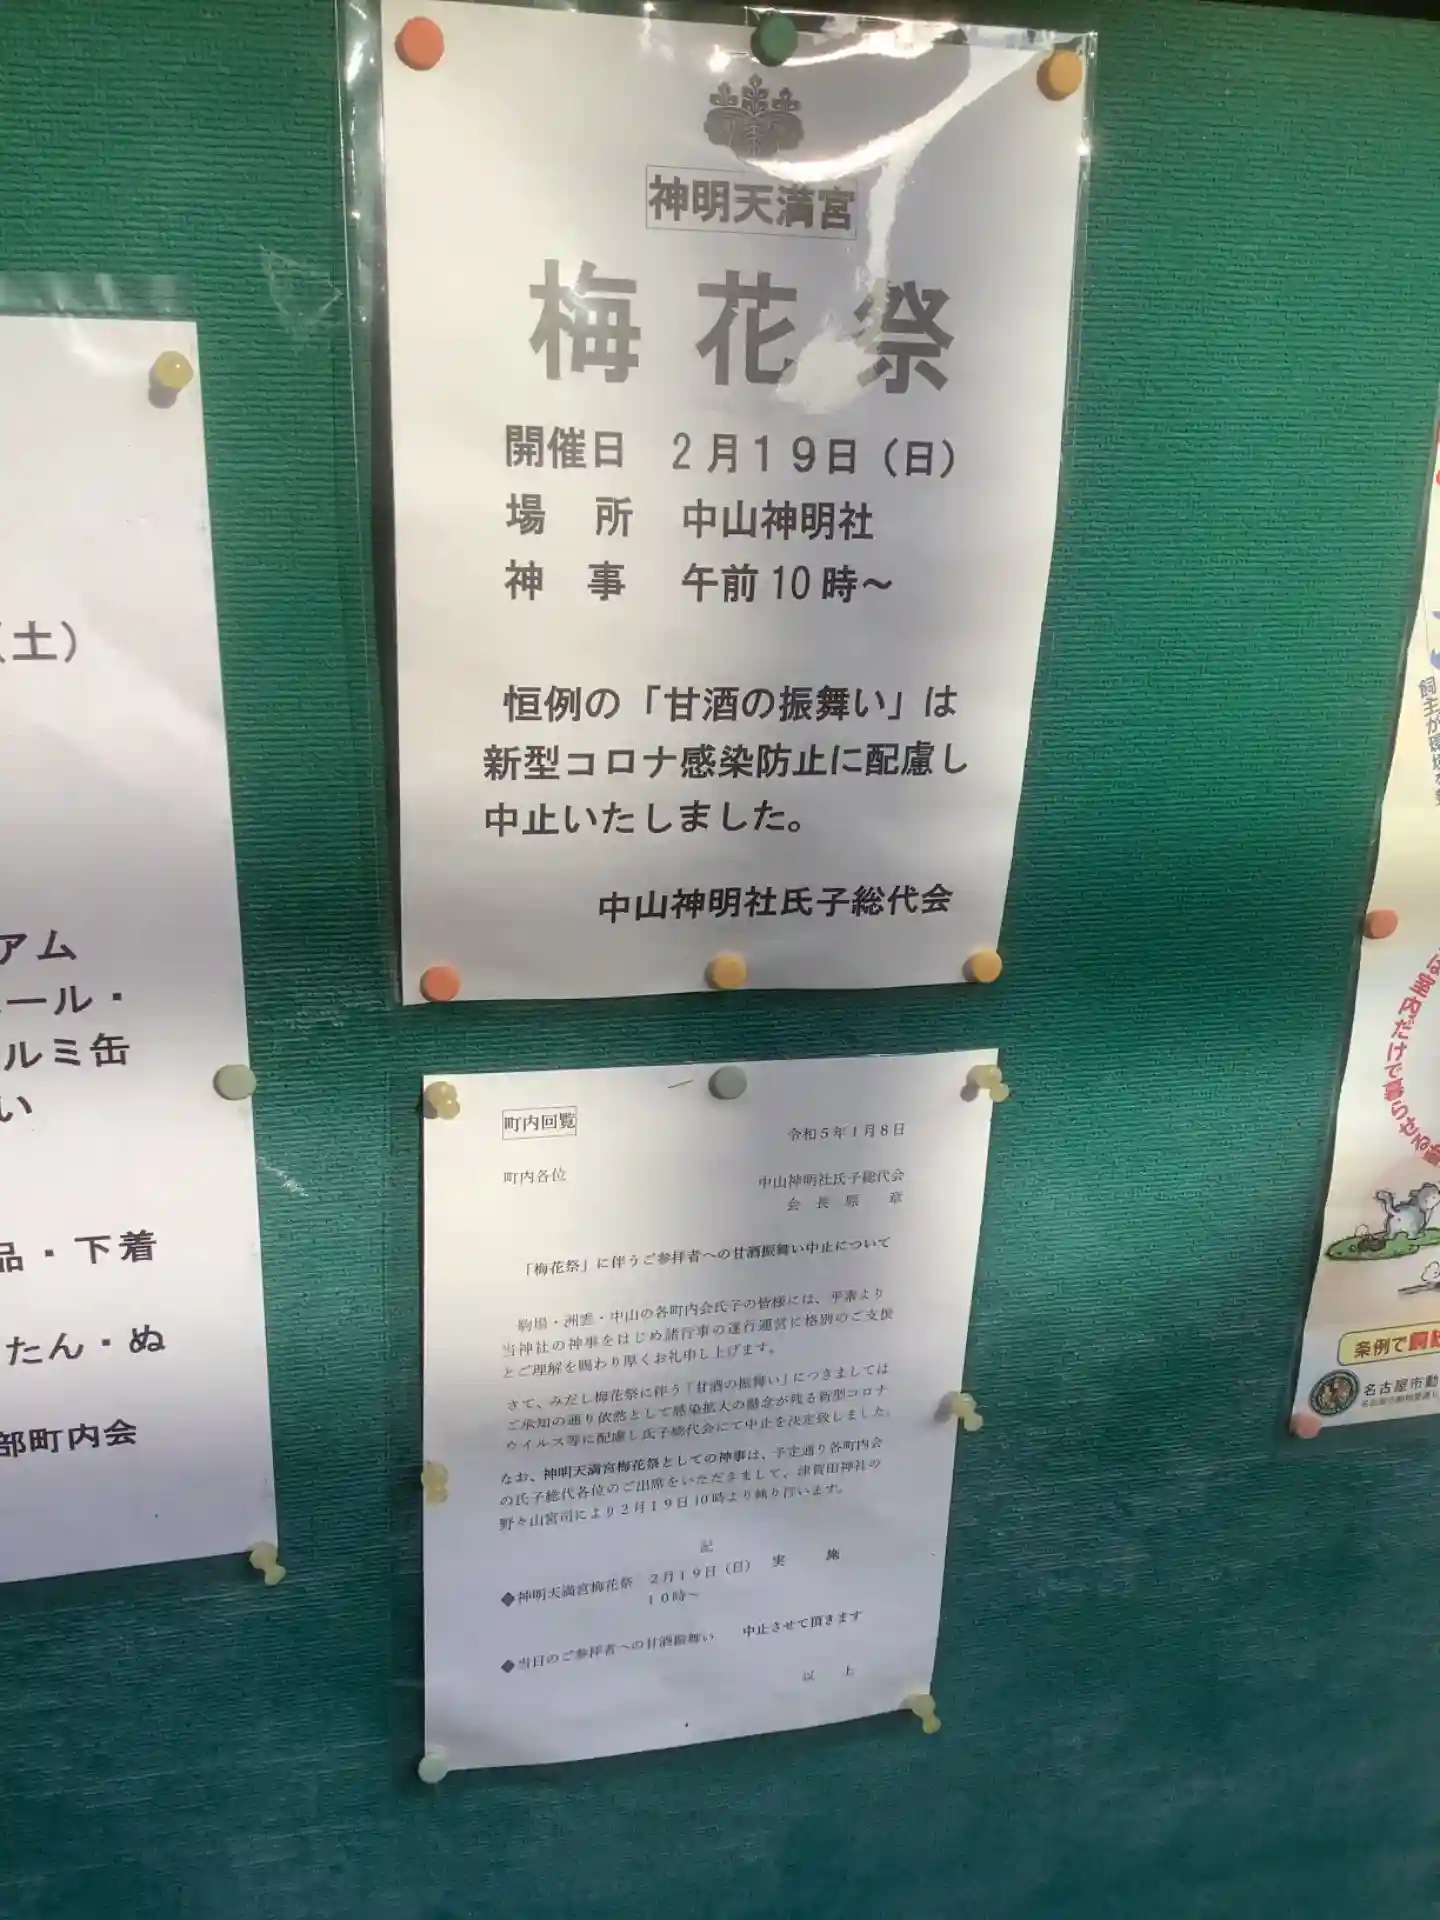 神明天満宮
梅花祭
開催日 2月19日(日)
場 所 中山神明社
神 事 午前10時～
恒例の「甘酒の振舞い」は
新型コロナ感染防止に配慮し
中止いたしました。
中山神明社氏子総代会
町内回覧
令和5年1月8日
町内各位
中山神明社氏子総代会
会 長 原 章
「梅花祭」に伴うご参拝者への甘酒振舞い中止について
駒場・洲雲・中山の各町内会氏子の皆様には、平素より
当神社の神事をはじめ諸行事の遂行運営に格別のご支援
とご理解を賜わり厚くお礼申し上げます。
さて、みだし梅花祭に伴う「甘酒の振舞い」につきましては
ご承知の通り依然として感染拡大の懸念が残る新型コロナ
ウイルス等に配慮し氏子総代会にて中止を決定致しました。
なお、神明天満宮梅花祭としての神事は、予定通り各町内会
の氏子総代各位のご出席をいただきまして、津賀田神社の
野々山宮司により2月19日10時より執り行います。
記
◆神明天満宮梅花祭 2月19日(日) 実 施
10時～
◆当日のご参拝者への甘酒振舞い 中止させて頂きます
以 上
(土)
アム
ール・
ルミ缶
い
品・下着
たん・ぬ
部町内会
は室内だけで暮らせる
条例で
名古屋市動